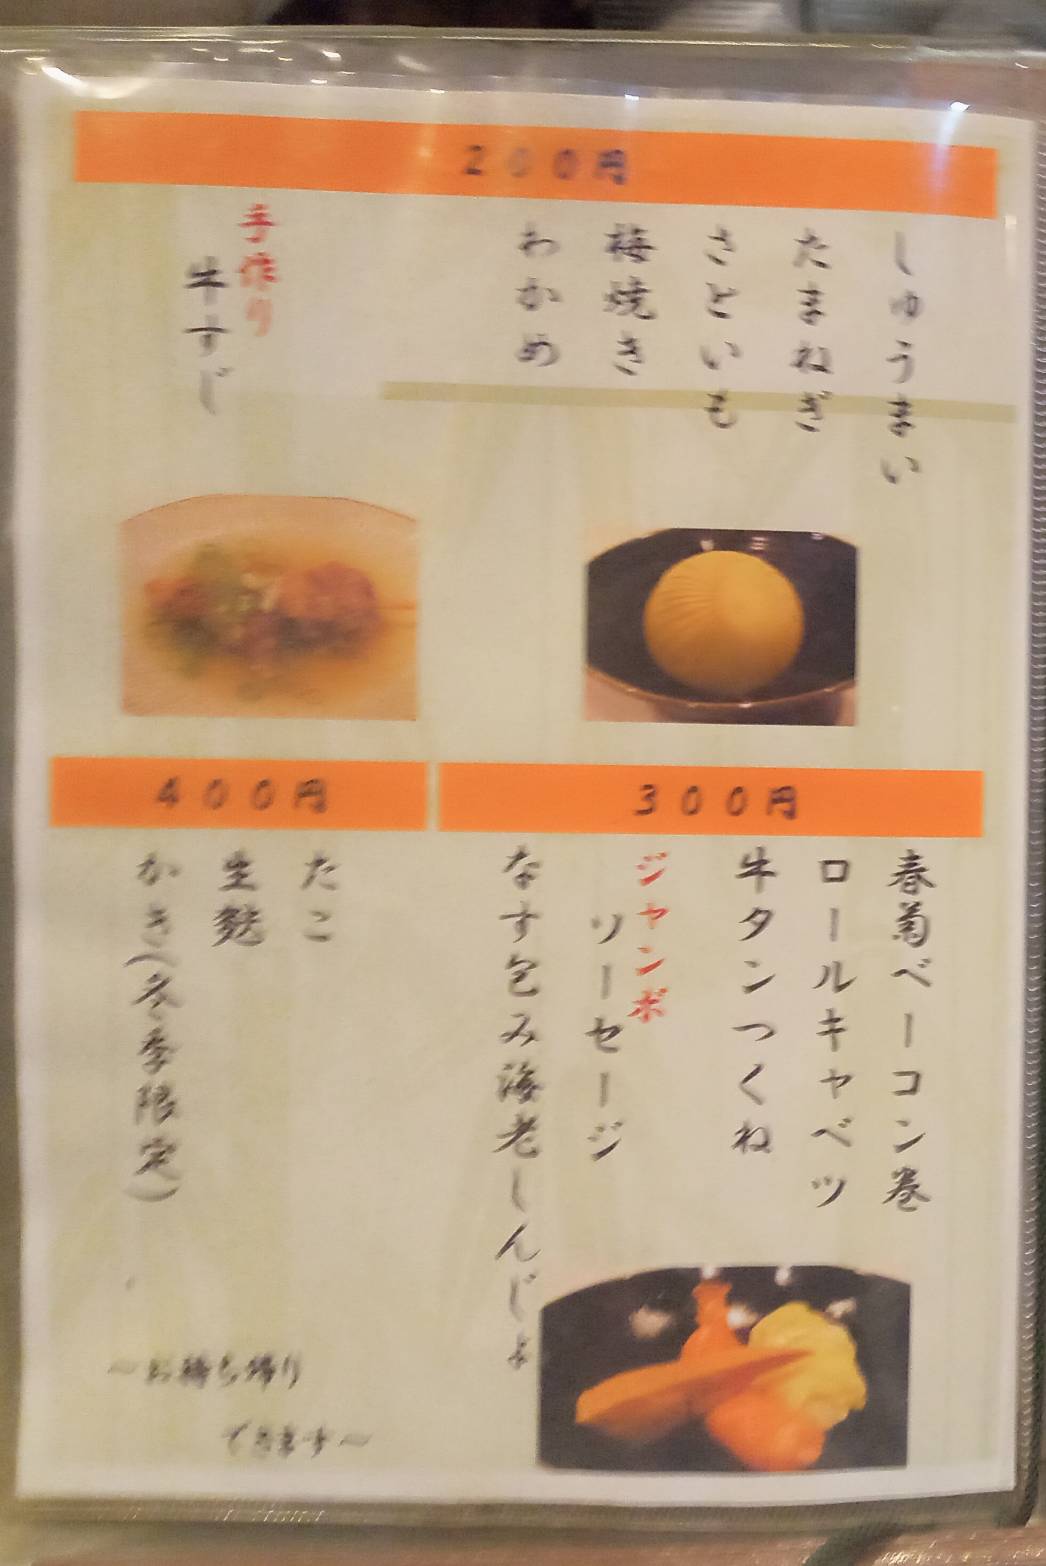 200円
しゅうまい
たまねぎ
さといも
梅焼き
わかめ
手作り
牛すじ
300円
春菊ベーコン巻
ロールキャベツ
牛タンつくね
ジャンボ
ソーセージ
なす包み海老しんじょ
400円
たこ
生麩
かき(冬季限定)
～お持ち帰り
できます～